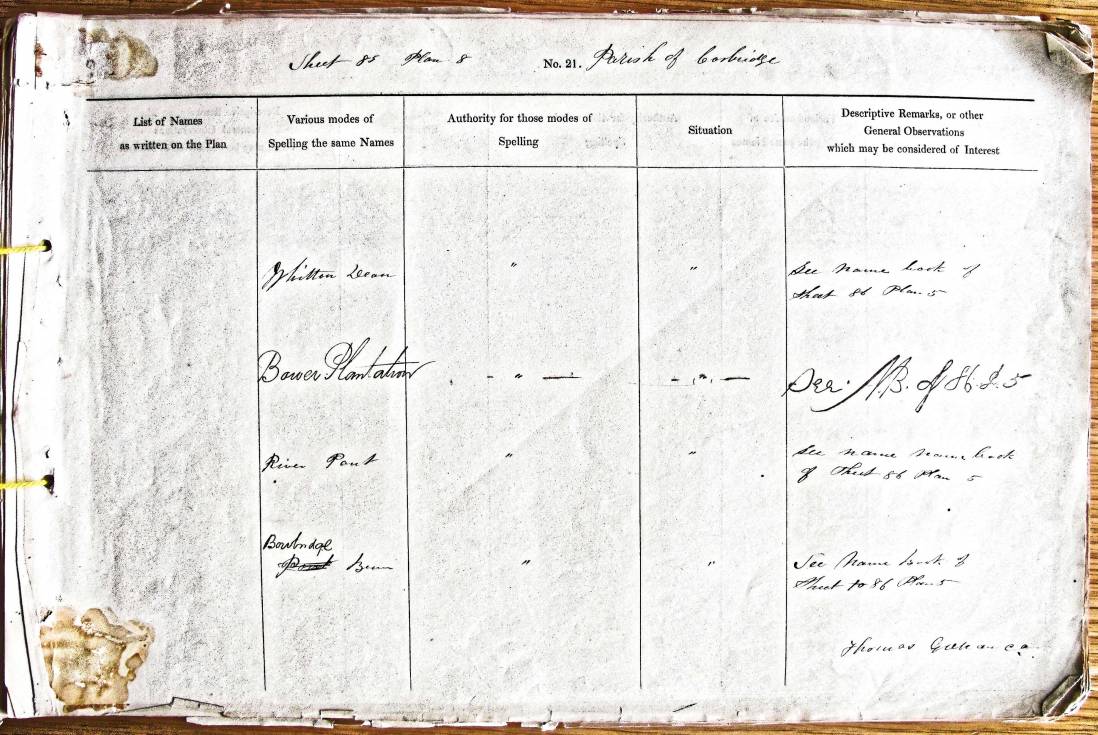 Sheet 85 Plan 8 No. 21. Parish of Corbridge
List of Names
as written on the Plan
Various modes of
Spelling the same Names
Authority for those modes of
Spelling
Situation
Descriptive Remarks, or other
General Observations
which may be considered of Interest
Whitton Dean " " See name book of
Sheet 86 Plan 5
Bower Plantation - " — - " — See N.B. of 86.P.5
River Pont " " See name name book
of Sheet 86 Plan 5
Bowbridge
Pont Burn " " See Name Book of
Sheet 86 Plan 5
Thomas c.a.